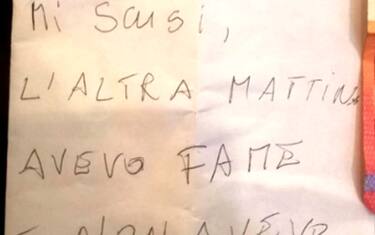 Mi SCUSi,
L'ALTRA MATTINA
AVEVO FAME
E NON AVEVO